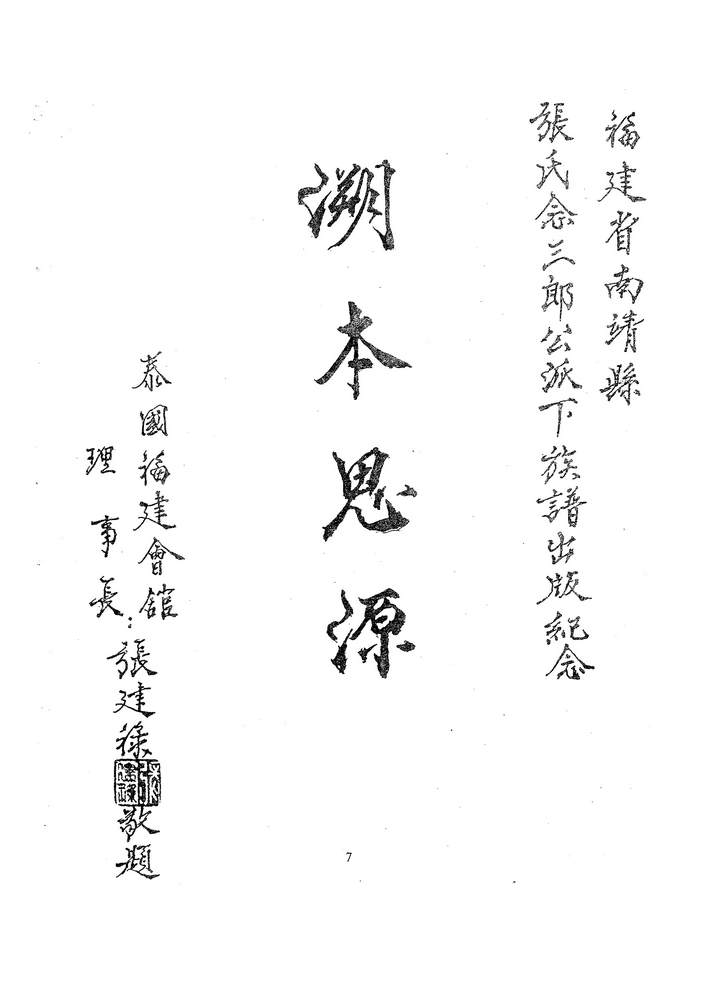 福建省南靖縣
張氏念三郎公派下族譜出版紀念
溯本思源
泰國福建會館
理事長：
張建祿
張建祿
敬題
7